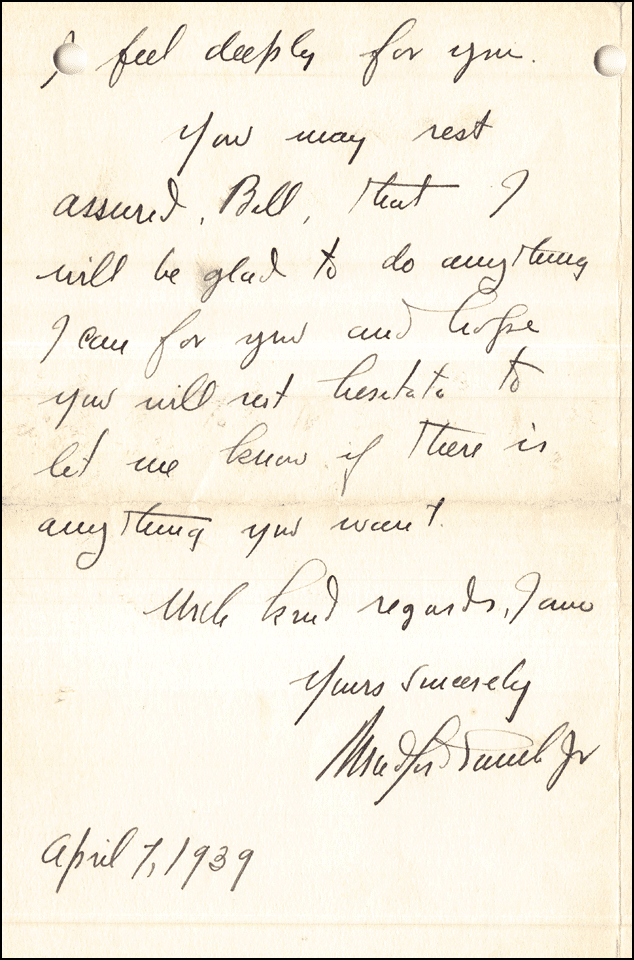 I feel deeply for you.
You may rest
assured, Bill, that I
will be glad to do anything
I can for you and hope
you will not hesitate to
let me know if there is
anything you want.
With kind regards, I am
Yours sincerely
Jr
April 7, 1939